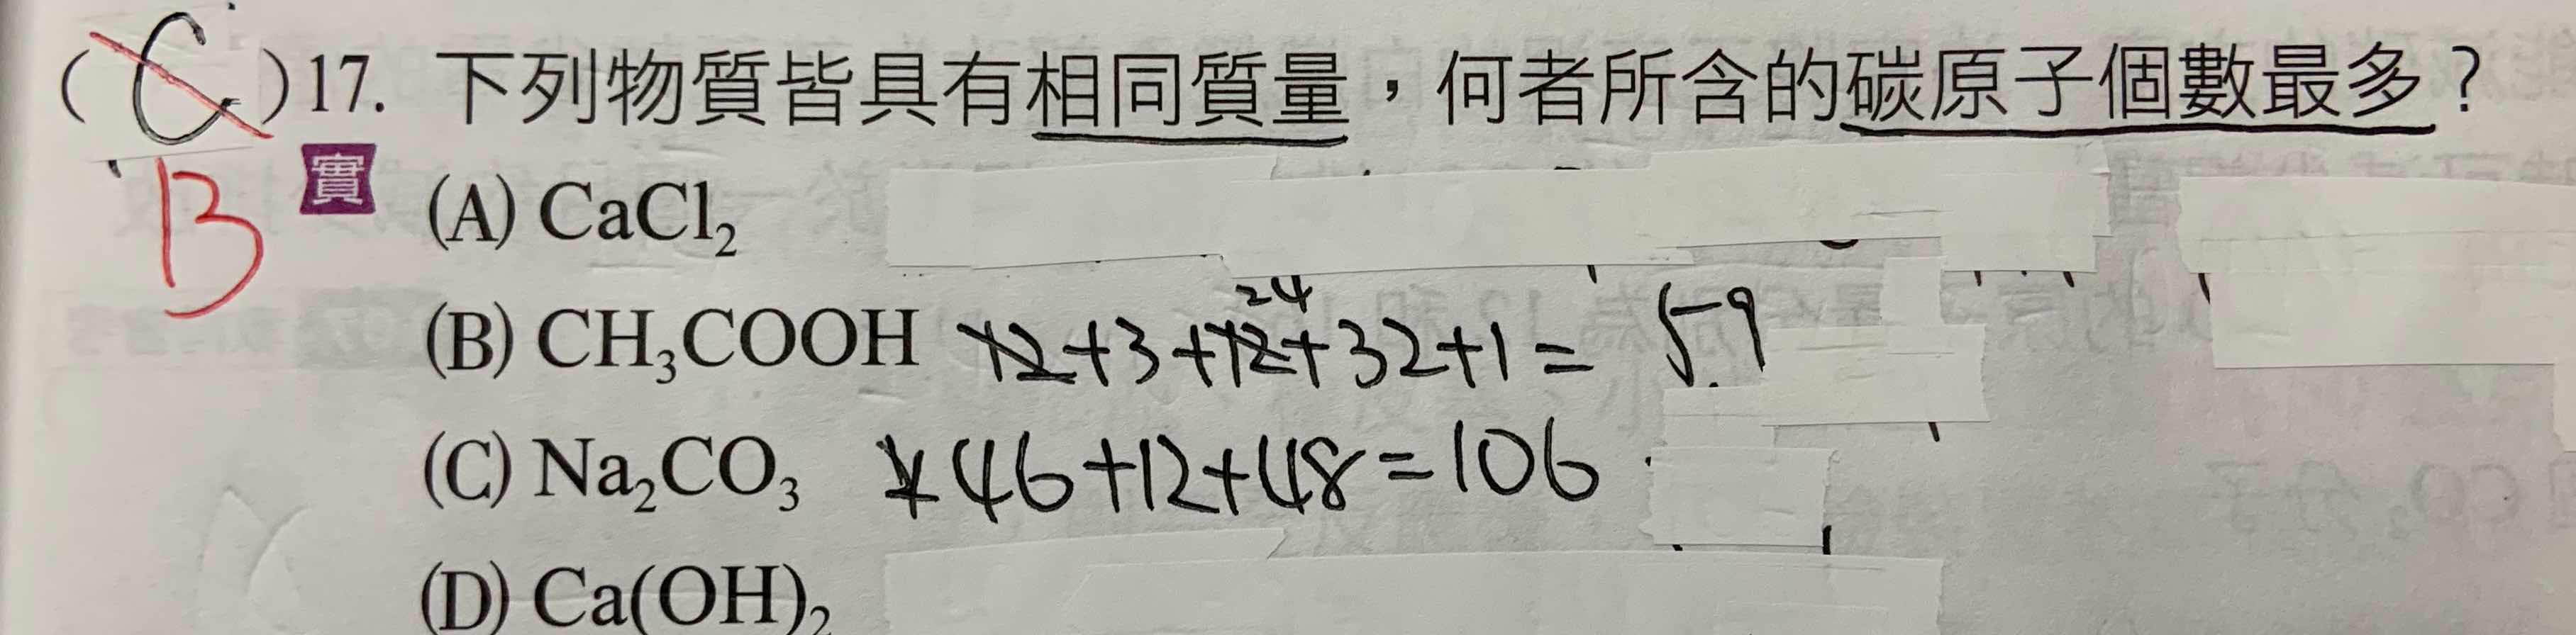 (C)17. 下列物質皆具有相同質量，何者所含的碳原子個數最多？
B 實 (A) CaCl₂
(B) CH₃COOH 12+3+12+32+1= 59
24
(C) Na₂CO₃ 46+12+48=106
(D) Ca(OH)₂